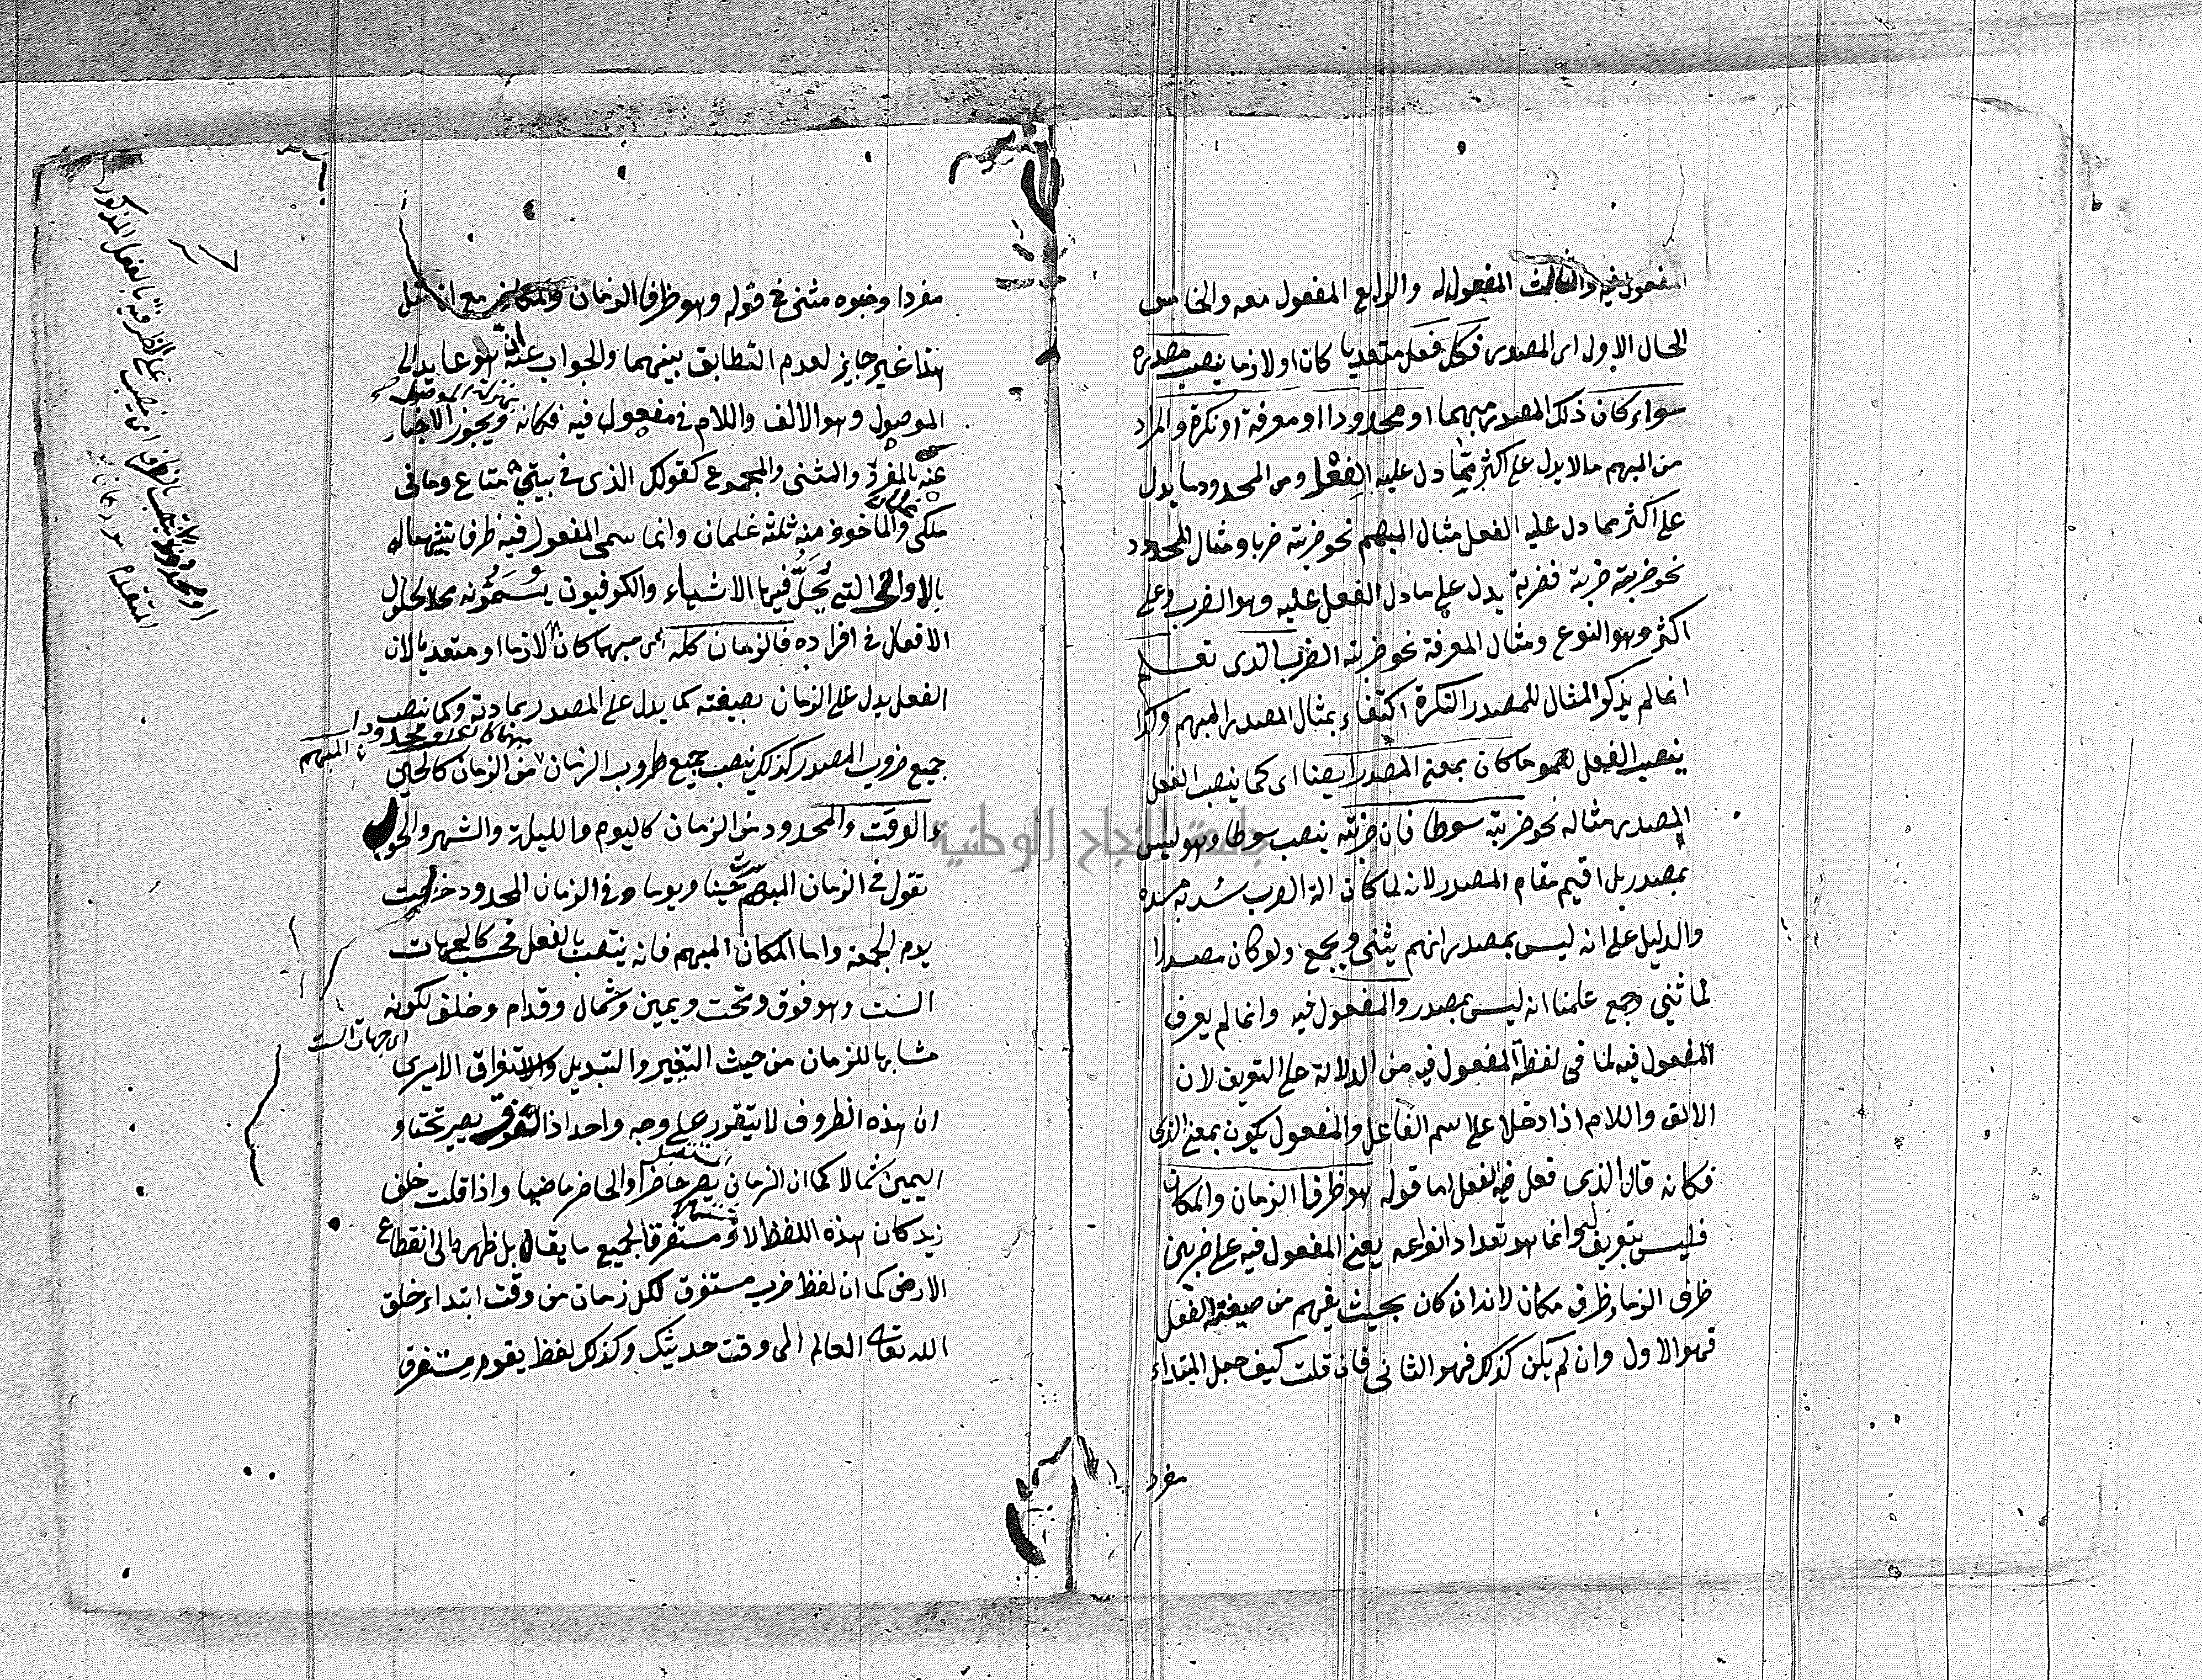 المفعول فيه والثالث المفعول له والرابع المفعول معه والخامس
الحال الاول اى المصدر فكل فعل متعديا كان او لازما ينصب مصدره
سواء كان ذلك المصدر مبهما او محدودا او معرفة او نكرة والمراد
من المبهم ما لا يدل على اكثر مما دل عليه الفعل ومن المحدود ما يدل
على اكثر مما دل عليه الفعل مثال المبهم نحو ضربته ضربا ومثال المحدود
نحو ضربته ضربة فضربة يدل على ما دل الفعل عليه وهو الضرب وعلى
اكثر وهو النوع ومثال المعرفة نحو ضربته الضرب الذى تعلم
انما لم يذكر المثال للمصدر النكرة اكتفاء بمثال المصدر المبهم وكذا
ينصب الفعل ما كان بمعنى المصدر ايضا اى كما ينصب الفعل
المصدر مثاله نحو ضربته سوطا فان ضربته ينصب سوطا وهو ليس
بمصدر بل اقيم مقام المصدر لانه لما كان الة الضرب سُد به مسده
والدليل على انه ليس بمصدر انهم يثنى ويجمع ولو كان مصدرا
لما ثنى وجمع علمنا انه ليس بمصدر والمفعول فيه وانما لم يعرف
المفعول فيه لما فى لفظة المفعول فيه من الدلالة على التعريف لان
الالف واللام اذا دخلا على اسم الفاعل والمفعول يكون بمعنى الذى
فكانه قال الذى فعل فيه الفعل اما قوله هو ظرفا الزمان والمكان
فليس بتعريف له وانما هو تعداد انواعه يعنى المفعول فيه على ضربين
ظرف الزمان وظرف مكان لانه ان كان بحيث يفهم من صيغة الفعل
فهو الاول وان لم يكن كذلك فهو الثانى فان قلت كيف جعل المبتداء
مفردا
مفردا وخبره مثنى فى قوله وهو ظرفا الزمان والمكان مع ان مثل
هذا غير جايز لعدم التطابق بينهما والجواب عنه ان هو عايد الى
الموصول وهو الالف واللام فى مفعول فيه فكانه ويجوز الاخبار
عنه بالمفرد والمثنى والمجموع كقولك الذى فى بيتى متاع وما فى
ملكى والماخوذ منه ثلثة غلمان وانما سمى المفعول فيه ظرفا تشبيها له
بالاوانى التى تحل فيها الاشياء والكوفيون يسمونه محلا لحلول
الافعال فى افراده فالزمان كله اى مبهما كان لازما او متعديا لان
الفعل يدل على الزمان بصيغته كما يدل على المصدر بمادته وكما ينصب
جميع ضروب المصدر كذلك ينصب جميع ظروف الزمان من الزمان كالحين
المبهم
والوقت والمحدود من الزمان كاليوم والليلة والشهر والحول
تقول فى الزمان المبهم حينا ويوما وفى الزمان المحدود خرجت
يوم الجمعة واما المكان المبهم فانه ينتصب بالفعل فحسب كالجهات
الست وهو فوق وتحت ويمين وشمال وقدام وخلف لكونه
اى جهات الست
مشابها للزمان من حيث التغير والتبديل والاستغراق الا يرى
ان هذه الظروف لا يتقرر على وجه واحد اذ الفوق يصير تحتا و
اليمين شمالا كما ان الزمان يصير حاضرا والحاضر ماضيا واذا قلت خلف
زيد كان هذه اللفظ مستغرقا لجميع ما يقابل ظهره الى انقطاع
الارض كما ان لفظ ضرب مستغرق لكل زمان من وقت ابتداء خلق
الله تعالى العالم الى وقت حديثك وكذلك لفظ يقوم مستغرق